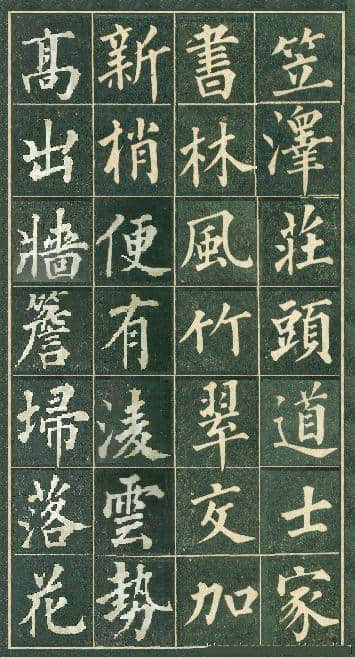 笠澤莊頭道士家
書林風竹翠交加
新梢便有淩雲勢
髙出牆簷埽落花